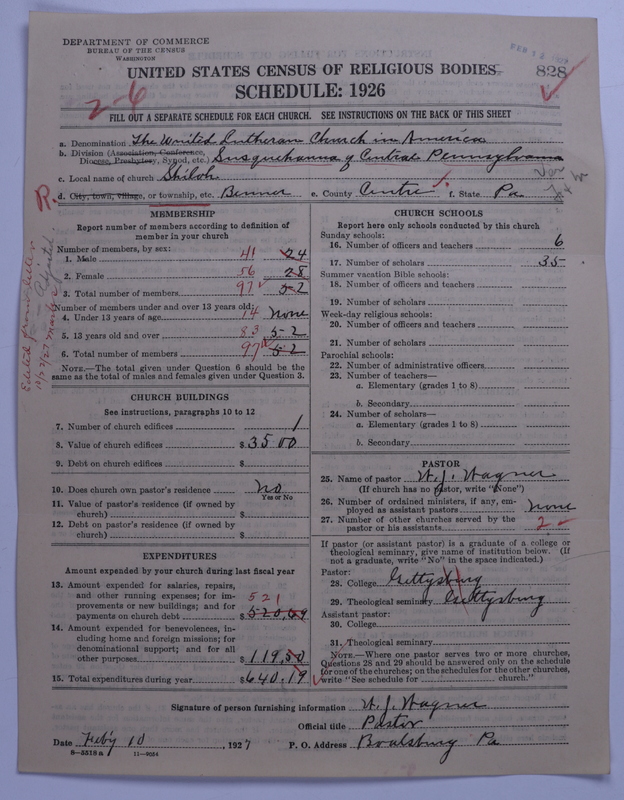 DEPARTMENT OF COMMERCE
BUREAU OF THE CENSUS
WASHINGTON
UNITED STATES CENSUS OF RELIGIOUS BODIES
828
SCHEDULE: 1926
2-6
FILL OUT A SEPARATE SCHEDULE FOR EACH CHURCH. SEE INSTRUCTIONS ON THE BACK OF THIS SHEET
a. Denomination The United Lutheran Church in America
b. Division (Association, Conference, Diocese, Presbytery, Synod, etc.) Susquehanna of Central Pennsylvania
c. Local name of church Shiloh
R. d. City, town, village, or township, etc. Benner e. County Centre f. State Pa
MEMBERSHIP
Report number of members according to definition of
member in your church
Number of members, by sex:
1. Male 41 24
2. Female 56 28
3. Total number of members 97 52
Number of members under and over 13 years old:
4. Under 13 years of age 14 None
5. 13 years old and over 83 52
6. Total number of members 97 52
NOTE.—The total given under Question 6 should be
same as the total of males and females given under Question 3.
CHURCH BUILDINGS
See instructions, paragraphs 10 to 12
7. Number of church edifices 1
8. Value of church edifices $ 3500
9. Debt on church edifices $
10. Does church own pastor's residence No
Yes or No
11. Value of pastor's residence (if owned by
church) $
12. Debt on pastor's residence (if owned by
church) $
EXPENDITURES
Amount expended by your church during last fiscal year
13. Amount expended for salaries, repairs,
and other running expenses; for im-
521
provements or new buildings; and for
payments on church debt $ 520.69
14. Amount expended for benevolences, in-
cluding home and foreign missions; for
denominational support; and for all
other purposes $ 119,50
15. Total expenditures during year $ 640.19
CHURCH SCHOOLS
Report here only schools conducted by this church
Sunday schools:
16. Number of officers and teachers 6
17. Number of scholars 35
Summer vacation Bible schools:
18. Number of officers and teachers
19. Number of scholars
Week-day religious schools:
20. Number of officers and teachers
21. Number of scholars
Parochial schools:
22. Number of administrative officers
23. Number of teachers—
a. Elementary (grades 1 to 8)
b. Secondary
24. Number of scholars—
a. Elementary (grades 1 to 8)
b. Secondary
PASTOR
25. Name of pastor W. J. Wagner
(If church has no pastor, write "None")
26. Number of ordained ministers, if any, em-
ployed as assistant pastors none
27. Number of other churches served by the
pastor or his assistants 2
If pastor (or assistant pastor) is a graduate of a college or
theological seminary, give name of institution below. (If
not a graduate, write "No" in the space indicated.)
Pastor:
28. College Gettysburg
29. Theological seminary Gettysburg
Assistant pastor:
30. College
31. Theological seminary
NOTE.—Where one pastor serves two or more churches,
Questions 28 and 29 should be answered only on the schedule
for one of the churches; on the schedules for the other churches,
write "See schedule for church."
Signature of person furnishing information W. J. Wagner
Official title Pastor
Date Feby 10, 1927 P. O. Address Boalsburg Pa
8-5518a 11-9014